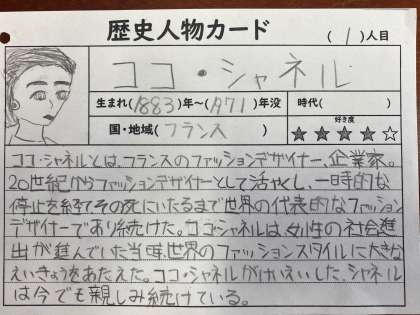 歴史人物カード
(1)人目
ココ・シャネル
生まれ(1883)年〜(1971)年没
時代( )
国・地域(フランス)
好き度
★★★★☆
ココ・シャネルとは、フランスのファッションデザイナー、企業家。
20世紀からファッションデザイナーとして活やくし、一時的な
停止を経てその死にいたるまで世界の代表的なファッション
デザイナーであり続けた。ココ・シャネルは、女性の社会進
出が進んでいた当時、世界のファッションスタイルに大きな
えいきょうをあたえた。ココ・シャネルがけいえいした、シャネル
は今でも親しみ続けている。